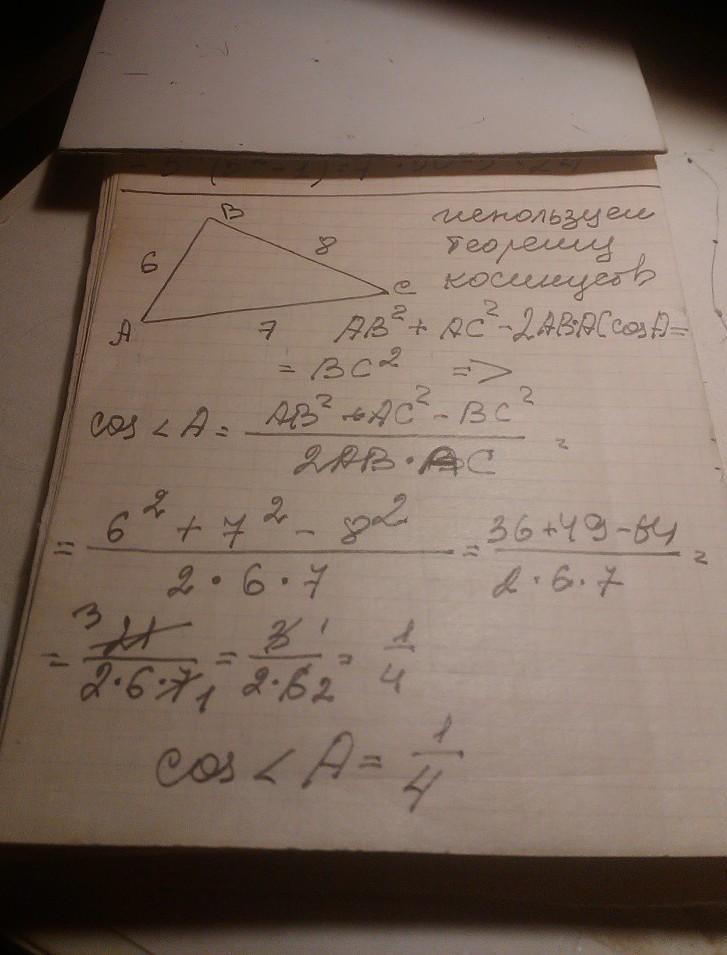 B
6
8
C
A
7
используем
теорему
косинусов
AB² + AC² - 2AB·AC cosA =
= BC² =>
cos ∠A = (AB² + AC² - BC²) / (2AB · AC) =
= (6² + 7² - 8²) / (2 · 6 · 7) = (36 + 49 - 64) / (2 · 6 · 7) =
= 21 3 / (2 · 6 · 7 1) = 3 1 / (2 · 6 2) = 1/4
cos ∠A = 1/4